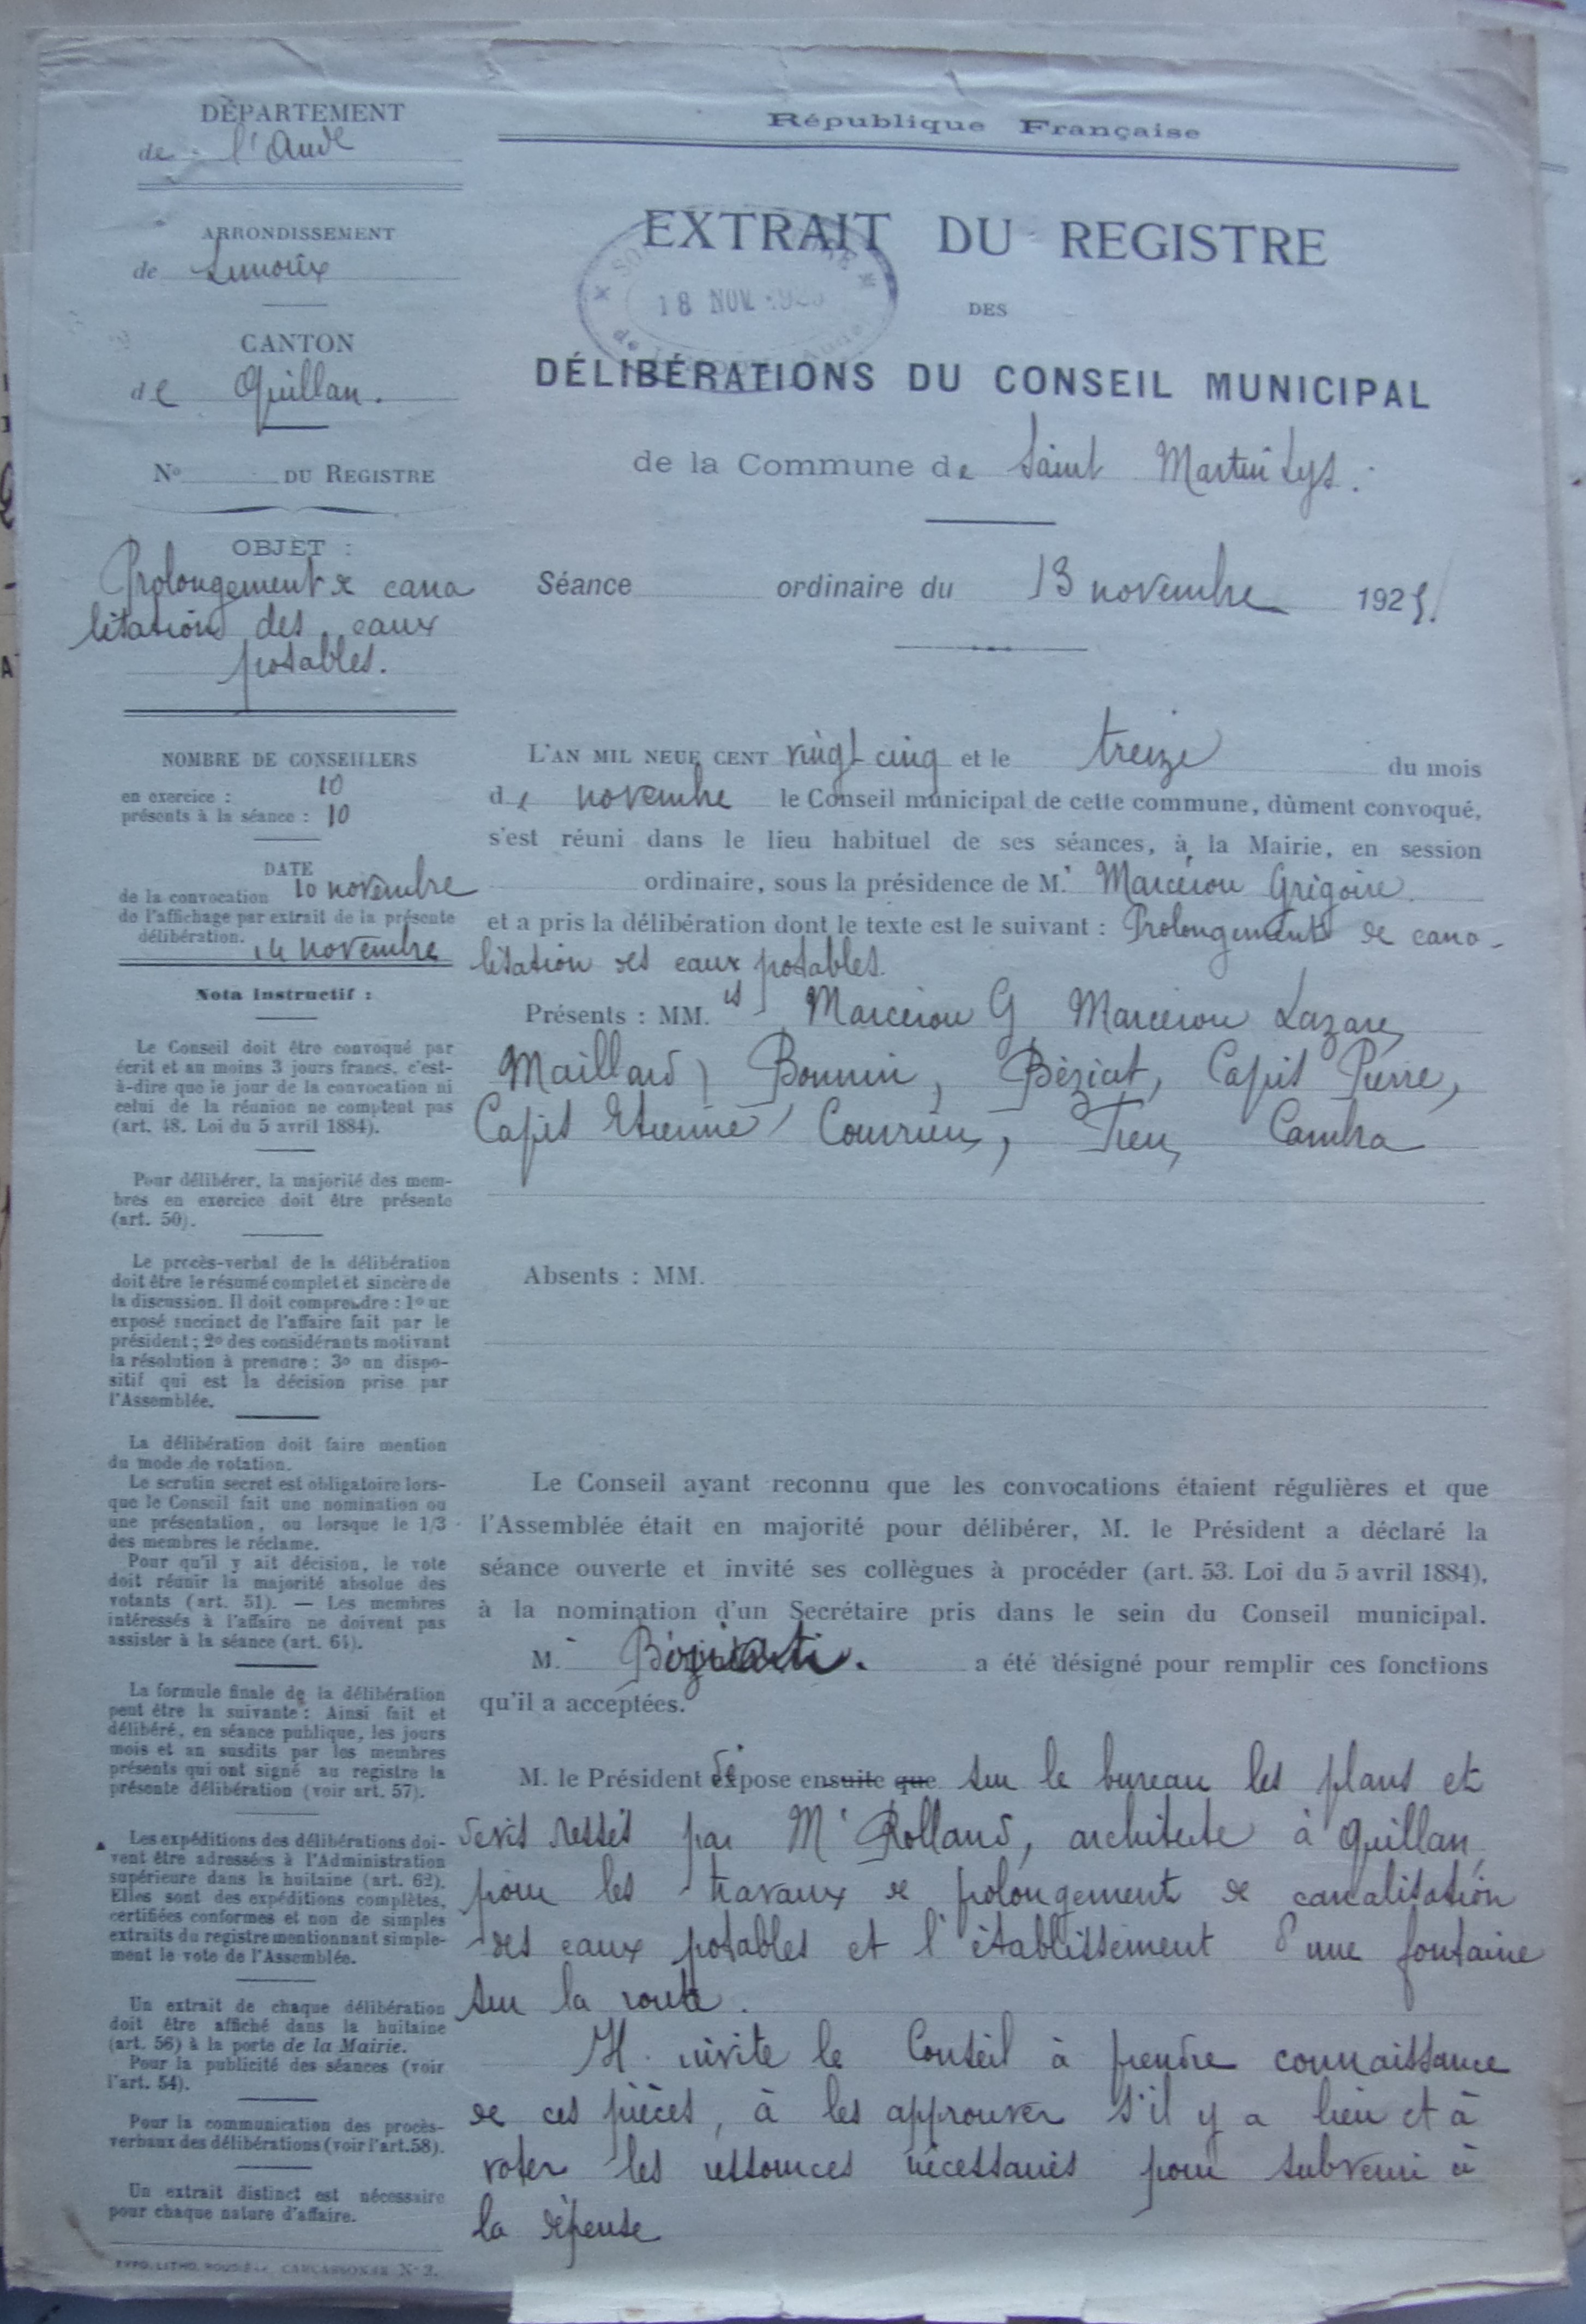 DÉPARTEMENT
de l'Aude
ARRONDISSEMENT
de Limoux
CANTON
de Quillan.
N° DU REGISTRE
OBJET :
Prolongement de cana
lisation des eaux
potables.
NOMBRE DE CONSEILLERS
en exercice : 10
présents à la séance : 10
DATE
de la convocation 10 novembre
de l'affichage par extrait de la présente
délibération. 14 novembre
Nota Instructif :
Le Conseil doit être convoqué par
écrit et au moins 3 jours francs, c'est-
à-dire que le jour de la convocation ni
celui de la réunion ne comptent pas
(art. 48. Loi du 5 avril 1884).
Pour délibérer, la majorité des mem-
bres en exercice doit être présente
(art. 50).
Le procès-verbal de la délibération
doit être le résumé complet et sincère de
la discussion. Il doit comprendre : 1° un
exposé succinct de l'affaire fait par le
président ; 2° des considérants motivant
la résolution à prendre : 3° un dispo-
sitif qui est la décision prise par
l'Assemblée.
La délibération doit faire mention
du mode de votation.
Le scrutin secret est obligatoire lors-
que le Conseil fait une nomination ou
une présentation, ou lorsque le 1/3
des membres le réclame.
Pour qu'il y ait décision, le vote
doit réunir la majorité absolue des
votants (art. 51). — Les membres
intéressés à l'affaire ne doivent pas
assister à la séance (art. 64).
La formule finale de la délibération
peut être la suivante : Ainsi fait et
délibéré, en séance publique, les jours
mois et an susdits par les membres
présents qui ont signé au registre la
présente délibération (voir art. 57).
Les expéditions des délibérations doi-
vent être adressées à l'Administration
supérieure dans la huitaine (art. 62).
Elles sont des expéditions complètes,
certifiées conformes et non de simples
extraits du registre mentionnant simple-
ment le vote de l'Assemblée.
Un extrait de chaque délibération
doit être affiché dans la huitaine
(art. 56) à la porte de la Mairie.
Pour la publicité des séances (voir
l'art. 54).
Pour la communication des procès-
verbaux des délibérations (voir l'art.58).
Un extrait distinct est nécessaire
pour chaque nature d'affaire.
CARCASSONNE N° 2.
République Française
EXTRAIT DU REGISTRE
18 NOV
DES
DÉLIBÉRATIONS DU CONSEIL MUNICIPAL
de la Commune de Saint Martin Lys.
Séance ordinaire du 13 novembre 1925.
L'AN MIL NEUF CENT vingt cinq et le treize du mois
de novembre le Conseil municipal de cette commune, dûment convoqué,
s'est réuni dans le lieu habituel de ses séances, à la Mairie, en session
ordinaire, sous la présidence de M. Marcérou Grégoire
et a pris la délibération dont le texte est le suivant : Prolongement de cana-
lisation des eaux potables.
Présents : MM. Marcerou G Marcerou Lazare,
Maillard, Bonnin, Béziat, Capis Pierre,
Capis Etienne, Courrieu, Tieu, Cambra
Absents : MM.
Le Conseil ayant reconnu que les convocations étaient régulières et que
l'Assemblée était en majorité pour délibérer, M. le Président a déclaré la
séance ouverte et invité ses collègues à procéder (art. 53. Loi du 5 avril 1884),
à la nomination d'un Secrétaire pris dans le sein du Conseil municipal.
M. a été désigné pour remplir ces fonctions
qu'il a acceptées.
M. le Président dépose ensuite que sur le bureau les plans et
devis dressés par M. Rolland, architecte à Quillan,
pour les travaux de prolongement de canalisation
des eaux potables et l'établissement d'une fontaine
sur la route.
Il invite le Conseil à prendre connaissance
de ces pièces, à les approuver s'il y a lieu et à
voter les ressources nécessaires pour subvenir à
la dépense